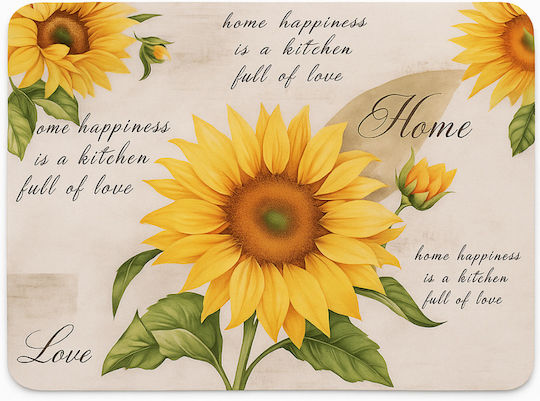 home happiness
is a kitchen
full of love
Home
ome happiness
is a kitchen
full of love
home happiness
is a kitchen
full of love
Love